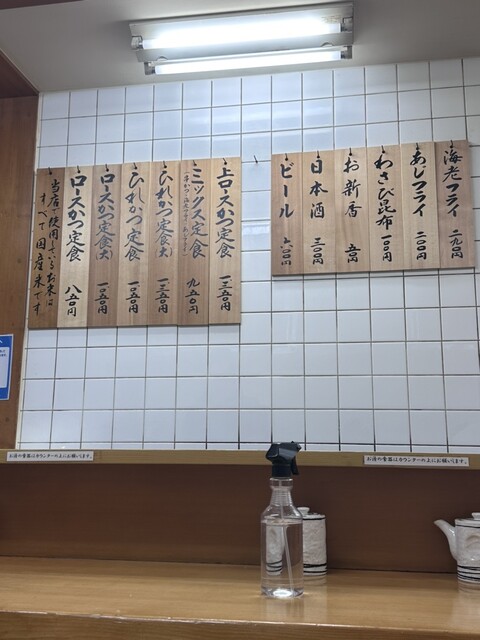 海老フライ 二九〇円
あじフライ 二〇〇円
わさび昆布 一〇〇円
お新香 五〇円
日本酒 三〇〇円
ビール 六〇〇円
上ロースかつ定食 一、三五〇円
ミックス定食 九五〇円
ひれかつ定食(大) 一、三五〇円
ひれかつ定食 一、〇五〇円
ロースかつ定食(大) 一、〇五〇円
ロースかつ定食 八五〇円
当店で使用しているお米は
すべて国産米です
お済の食器はカウンターの上にお願いします。
お済の食器はカウンターの上にお願いします。